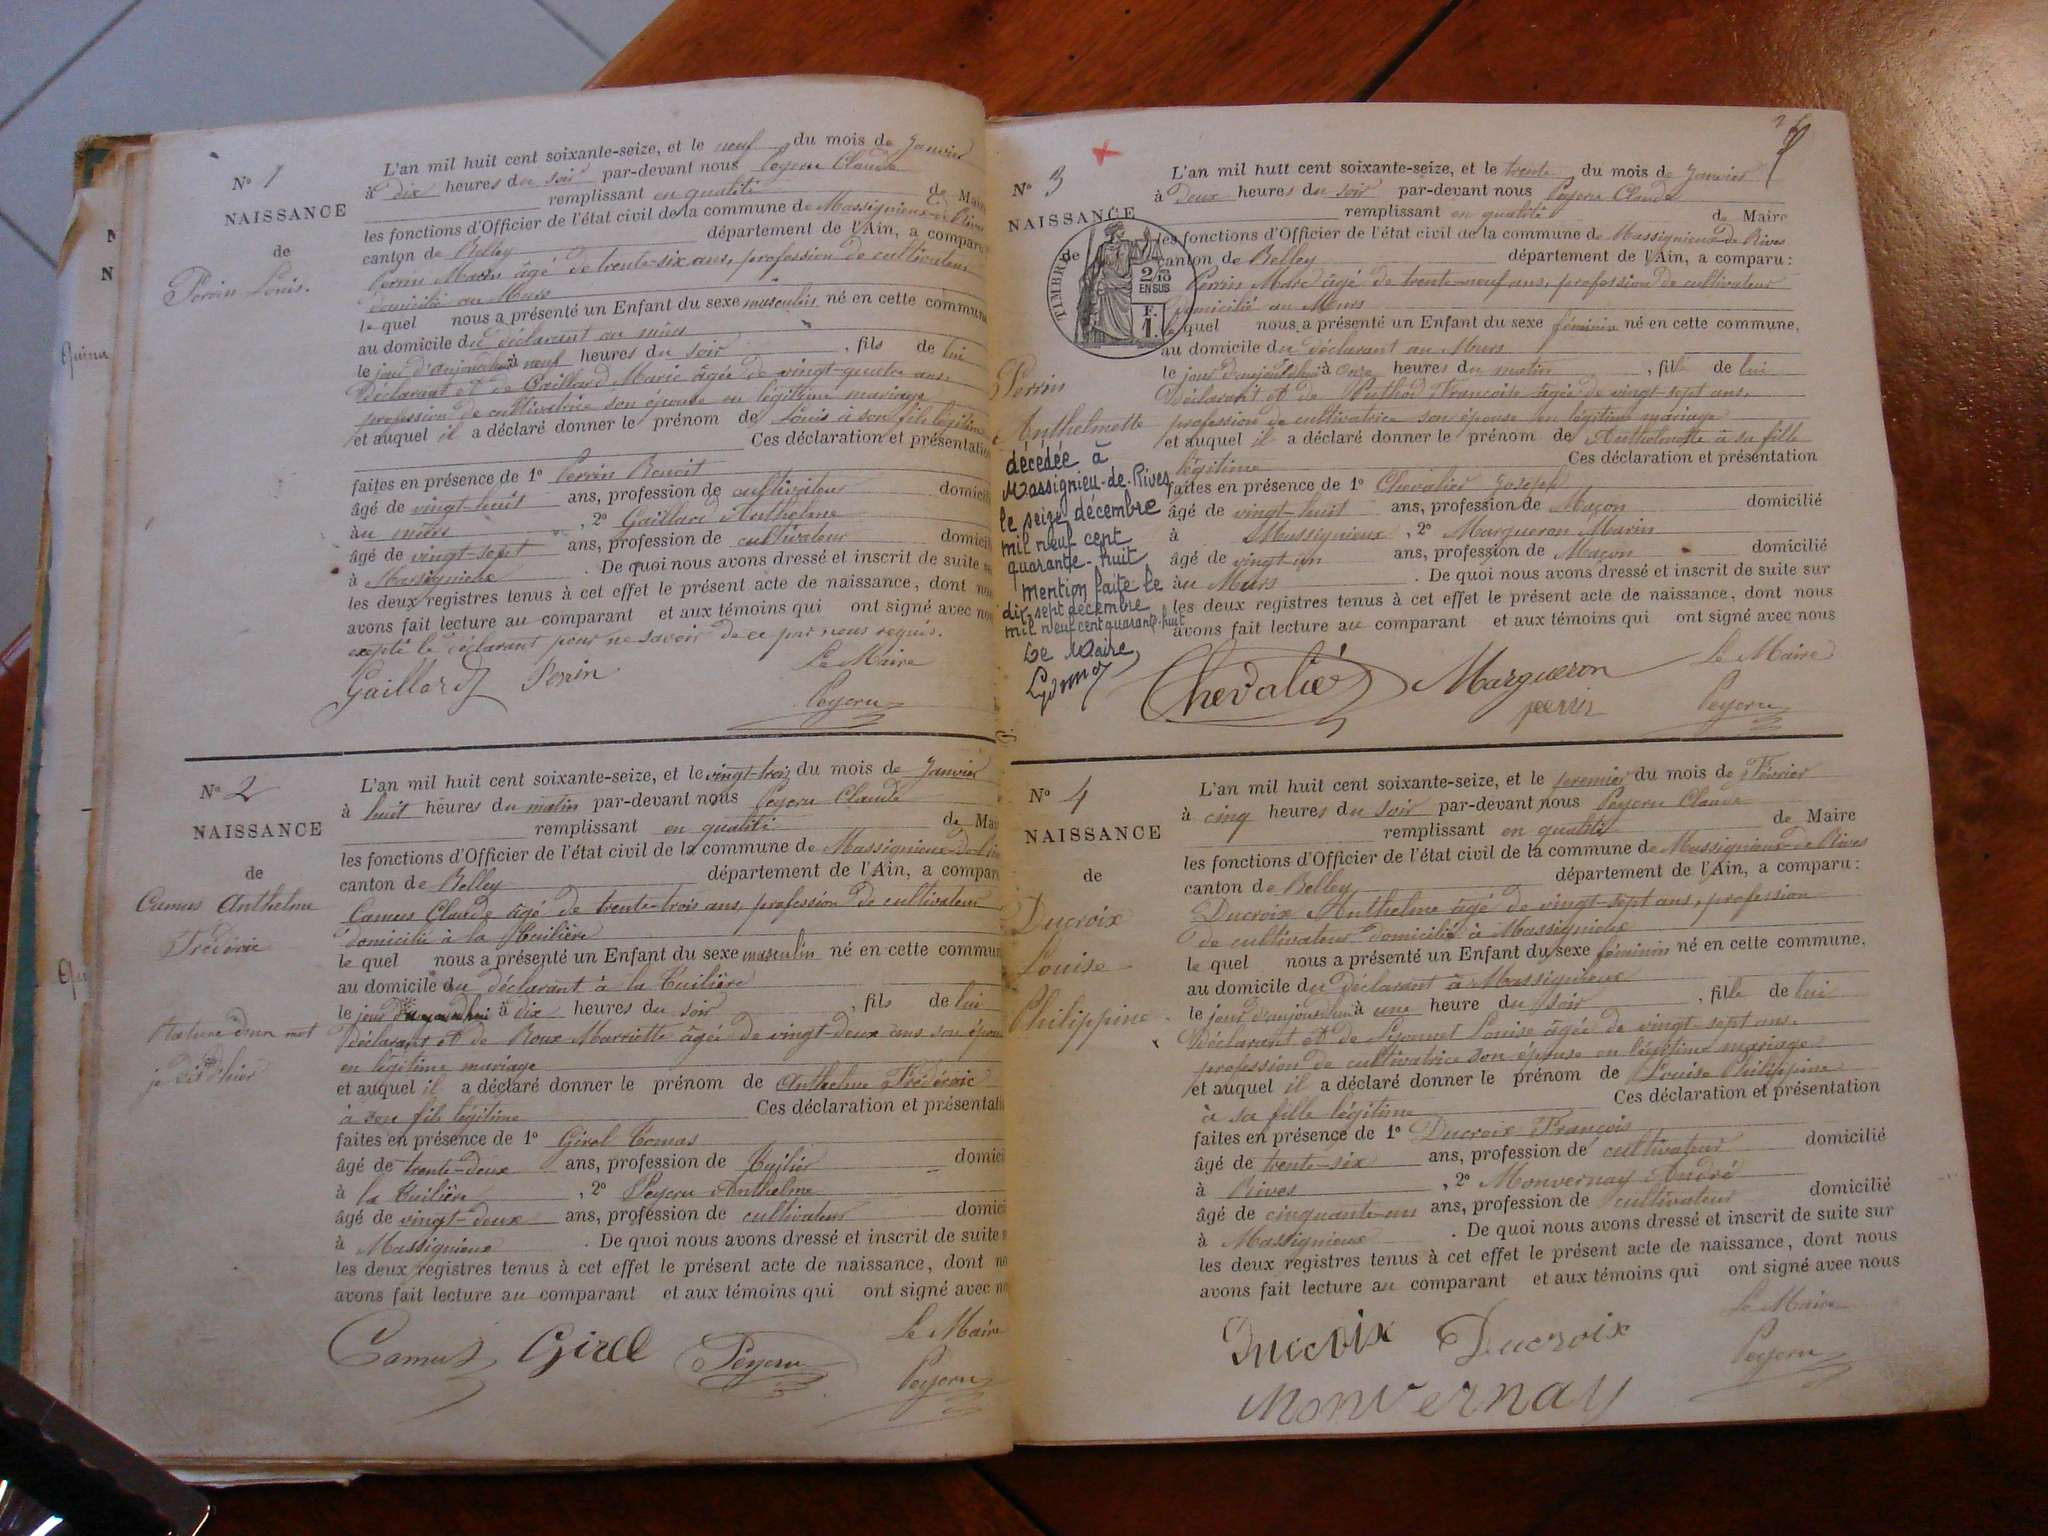 N° 1
NAISSANCE
de
Perrin Louis.
L'an mil huit cent soixante-seize, et le neuf du mois de Janvier
à dix heures du soir par-devant nous Peyeru Claude
remplissant en qualité de Maire
les fonctions d'Officier de l'état civil de la commune de Massignieux-de Rives
canton de Belley département de l'Ain, a comparu
Perrin Marin âgé de trente-six ans, profession de cultivateur
domicilié au Murs
le quel nous a présenté un Enfant du sexe masculin né en cette commune
au domicile du déclarant au mûrs
le jour d'aujourd'hui à neuf heures du soir, fils de lui
déclarant et de Gaillard Marie âgée de vingt-quatre ans.
profession de cultivatrice son épouse en légitime mariage
et auquel il a déclaré donner le prénom de Louis à son fils légitime
Ces déclaration et présentation
faites en présence de 1° Perrin Benoit
âgé de vingt-huit ans, profession de cultivateur domicilié
au mûrs, 2° Gaillard Anthelme
âgé de vingt-sept ans, profession de cultivateur domicilié
à Massignieux. De quoi nous avons dressé et inscrit de suite
les deux registres tenus à cet effet le présent acte de naissance, dont nous
avons fait lecture au comparant et aux témoins qui ont signé avec nous
excepté le déclarant pour ne savoir de ce par nous requis.
Gaillard Perrin Le Maire
Peyeru
N° 2
NAISSANCE
de
Camus Anthelme
Frédéric
Rature d'un mot
je dis d'hier
L'an mil huit cent soixante-seize, et le vingt-trois du mois de Janvier
à huit heures du matin par-devant nous Peyeru Claude
remplissant en qualité de Maire
les fonctions d'Officier de l'état civil de la commune de Massignieux-de-Rives
canton de Belley département de l'Ain, a comparu
Camus Claude âgé de trente-trois ans, profession de cultivateur
domicilié à la Tuilière
le quel nous a présenté un Enfant du sexe masculin né en cette commune
au domicile du déclarant à la Tuilière
le jour d'aujourd'hui à dix heures du soir, fils de lui
déclarant et de Roux Marriette âgée de vingt-deux ans son épouse
en légitime mariage
et auquel il a déclaré donner le prénom de Anthelme Frédéric
à son fils légitime Ces déclaration et présentation
faites en présence de 1° Girel Tomas
âgé de trente-deux ans, profession de Tuilier domicilié
à la Tuilière, 2° Peyeru Anthelme
âgé de vingt-deux ans, profession de cultivateur domicilié
à Massignieux. De quoi nous avons dressé et inscrit de suite
les deux registres tenus à cet effet le présent acte de naissance, dont nous
avons fait lecture au comparant et aux témoins qui ont signé avec nous
Le Maire
Camus Girel Peyeru Peyeru
N° 3
NAISSANCE
de
TIMBRE
2/10
EN SUS
F.
1.
Perrin
Anthelmette
décédée à
Massignieu-de-Rives
le seize décembre
mil neuf cent
quarante-huit
Mention faite le
dix-sept décembre
mil neuf cent quarante-huit
Le Maire,
L'an mil huit cent soixante-seize, et le trente du mois de Janvier
à deux heures du soir par-devant nous Peyeru Claude
remplissant en qualité de Maire
les fonctions d'Officier de l'état civil de la commune de Massignieux-de Rives
canton de Belley département de l'Ain, a comparu:
Perrin Marc âgé de trente-neuf ans, profession de cultivateur
domicilié au Murs
le quel nous a présenté un Enfant du sexe féminin né en cette commune,
au domicile du déclarant au Murs
le jour d'aujourd'hui à onze heures du matin, fille de lui
déclarant et de Françoise âgée de vingt-sept ans,
profession de cultivatrice son épouse en légitime mariage
et auquel il a déclaré donner le prénom de Anthelmette à sa fille
légitime Ces déclaration et présentation
faites en présence de 1° Chevalier Joseph
âgé de vingt-huit ans, profession de Maçon domicilié
à Massignieux, 2° Margueron Marin
âgé de vingt-un ans, profession de Maçon domicilié
au Murs. De quoi nous avons dressé et inscrit de suite sur
les deux registres tenus à cet effet le présent acte de naissance, dont nous
avons fait lecture au comparant et aux témoins qui ont signé avec nous
Le Maire
Chevalié Margueron
perrin Peyeru
N° 4
NAISSANCE
de
Ducroix
Louise
Philippine
L'an mil huit cent soixante-seize, et le premier du mois de Février
à cinq heures du soir par-devant nous Peyeru Claude
remplissant en qualité de Maire
les fonctions d'Officier de l'état civil de la commune de Massignieux-de Rives
canton de Belley département de l'Ain, a comparu:
Ducroix Anthelme âgé de vingt-sept ans, profession
de cultivateur domicilié à Massignieux
le quel nous a présenté un Enfant du sexe féminin né en cette commune,
au domicile du déclarant à Massignieux
le jour d'aujourd'hui à une heure du soir, fille de lui
déclarant et de Louise âgée de vingt-sept ans.
profession de cultivatrice son épouse en légitime mariage
et auquel il a déclaré donner le prénom de Louise Philippine
à sa fille légitime Ces déclaration et présentation
faites en présence de 1° Ducroix François
âgé de trente-six ans, profession de cultivateur domicilié
à Rives, 2° Monvernay André
âgé de cinquante-un ans, profession de cultivateur domicilié
à Massignieux. De quoi nous avons dressé et inscrit de suite sur
les deux registres tenus à cet effet le présent acte de naissance, dont nous
avons fait lecture au comparant et aux témoins qui ont signé avec nous
Le Maire
Ducroix Ducroix Peyeru
Monvernay